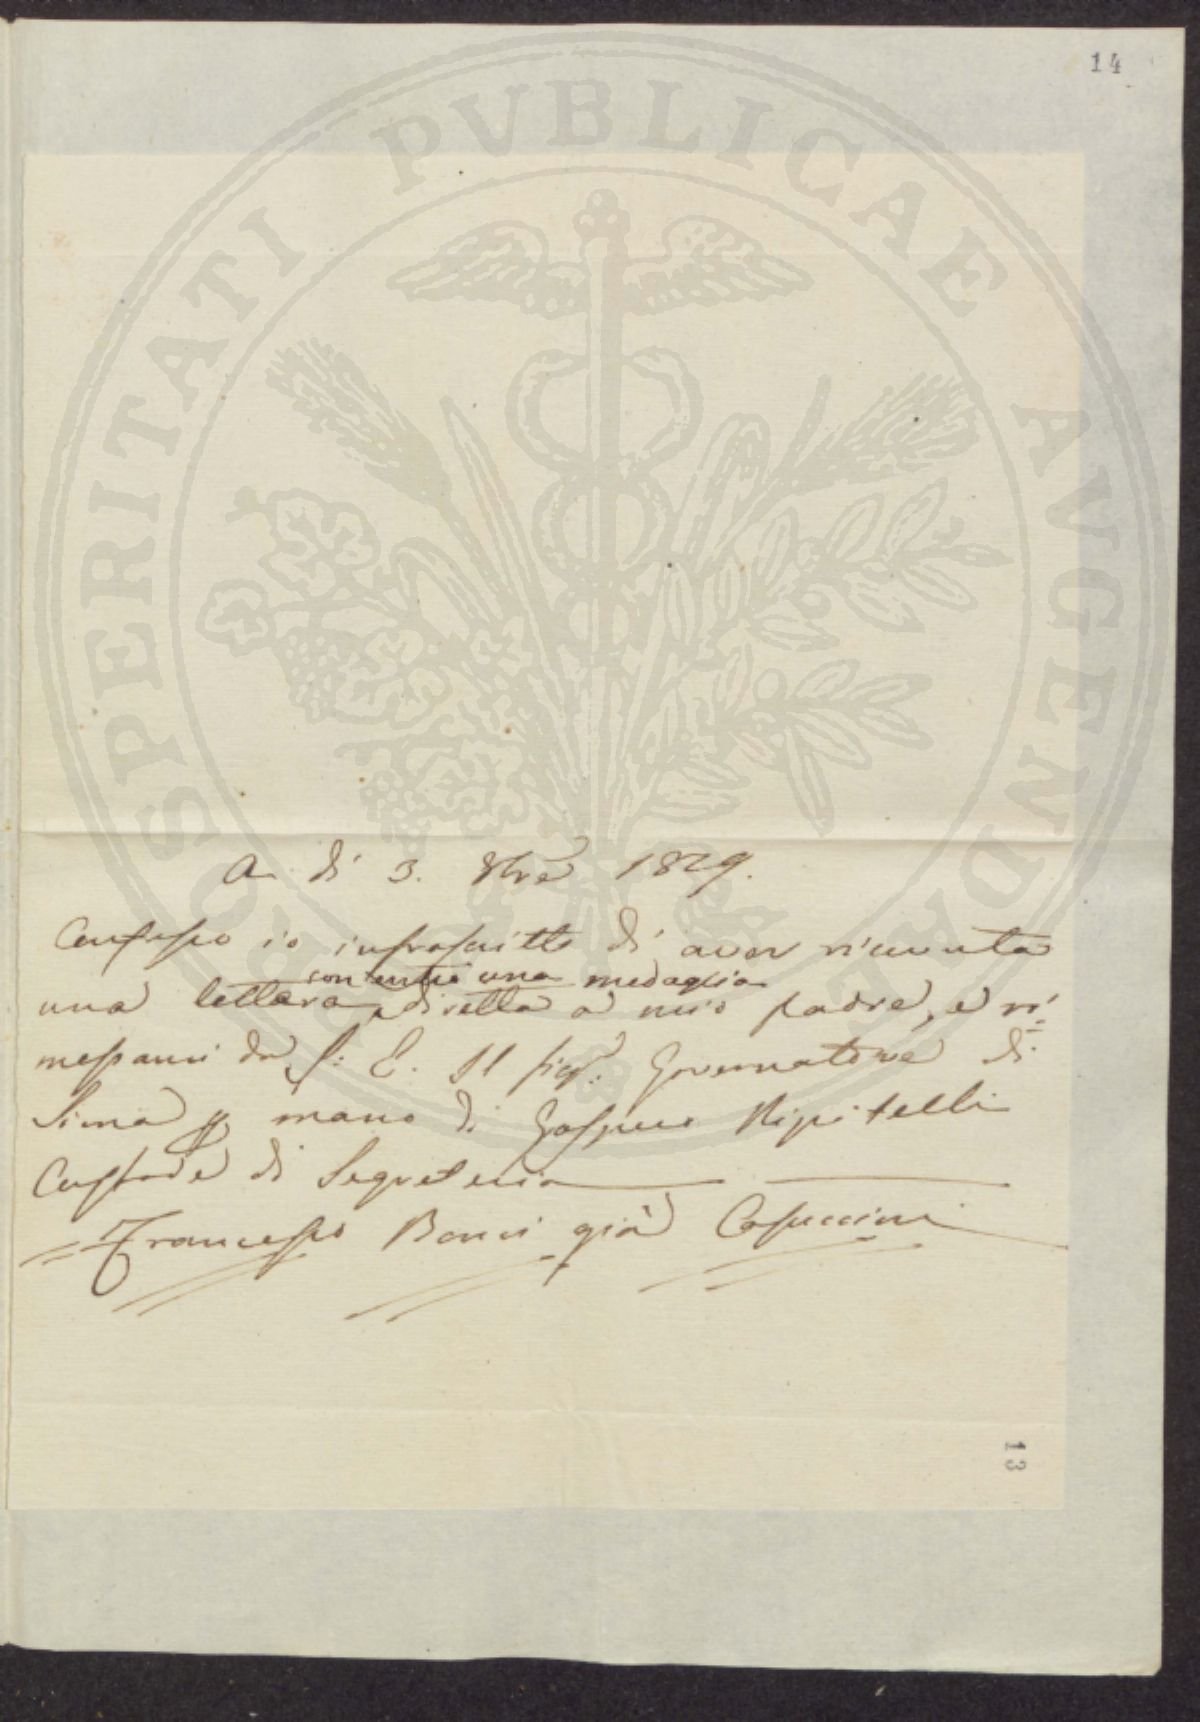 14
PROSPERITATI PVBLICAE AVGENDAE
A dì 3. 8bre 1829.
Confesso io infrascritto di aver ricevuta
contenente una medaglia
una lettera, diretta a mio padre, e ri=
messami da S: E. Il Sig.r Governatore di
Siena p mano di Gaspero Ripitelli
Custode di Segreteria
Francesco Bonci già Casuccini
13